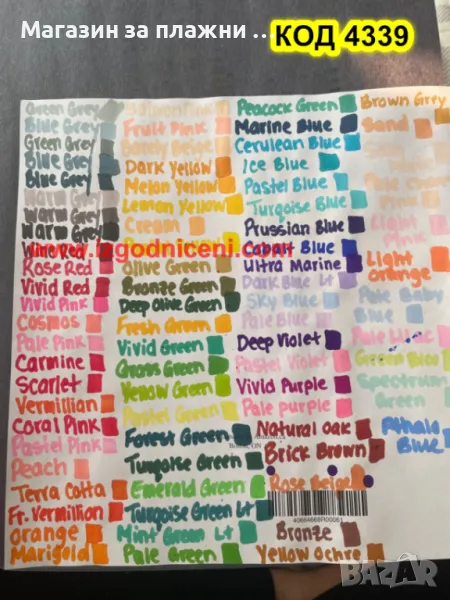 Магазин за плажни ...
КОД 4339
Green Grey
Blue Grey
Green Grey
Blue Grey
Blue Grey
Warm Grey
Warm Grey
Warm Grey
Wine Red
Rose Red
Vivid Red
Vivid Pink
Cosmos
Pale Pink
Carmine
Scarlet
Vermillian
Coral Pink
Pastel Pink
Peach
Terra Cotta
Fr. Vermillion
Orange
Marigold
Salmon Pink
Fruit Pink
Barely Beige
Dark Yellow
Melon Yellow
Lemon Yellow
Cream
Olive Green
Bronze Green
Deep Olive Green
Fresh Green
Vivid Green
Grass Green
Yellow Green
Pastel Green
Forest Green
Turquoise Green
Emerald Green
Turquoise Green Lt
Mint Green Lt
Pale Green
Peacock Green
Marine Blue
Cerulean Blue
Ice Blue
Pastel Blue
Turqoise Blue
Prussian Blue
Cobalt Blue
Ultra Marine
Dark Blue Lt
Sky Blue
Pale Blue
Deep Violet
Pastel Violet
Vivid Purple
Pale purple
Natural Oak
Brick Brown
Rose Beige
Bronze
Yellow Ochre
Brown Grey
Sand
Light Pink
Light orange
Pale Baby Blue
Pale Lilac
Green Bice
Spectrum Green
Pthalo Blue
www.iagodniceni.com
BAZAR